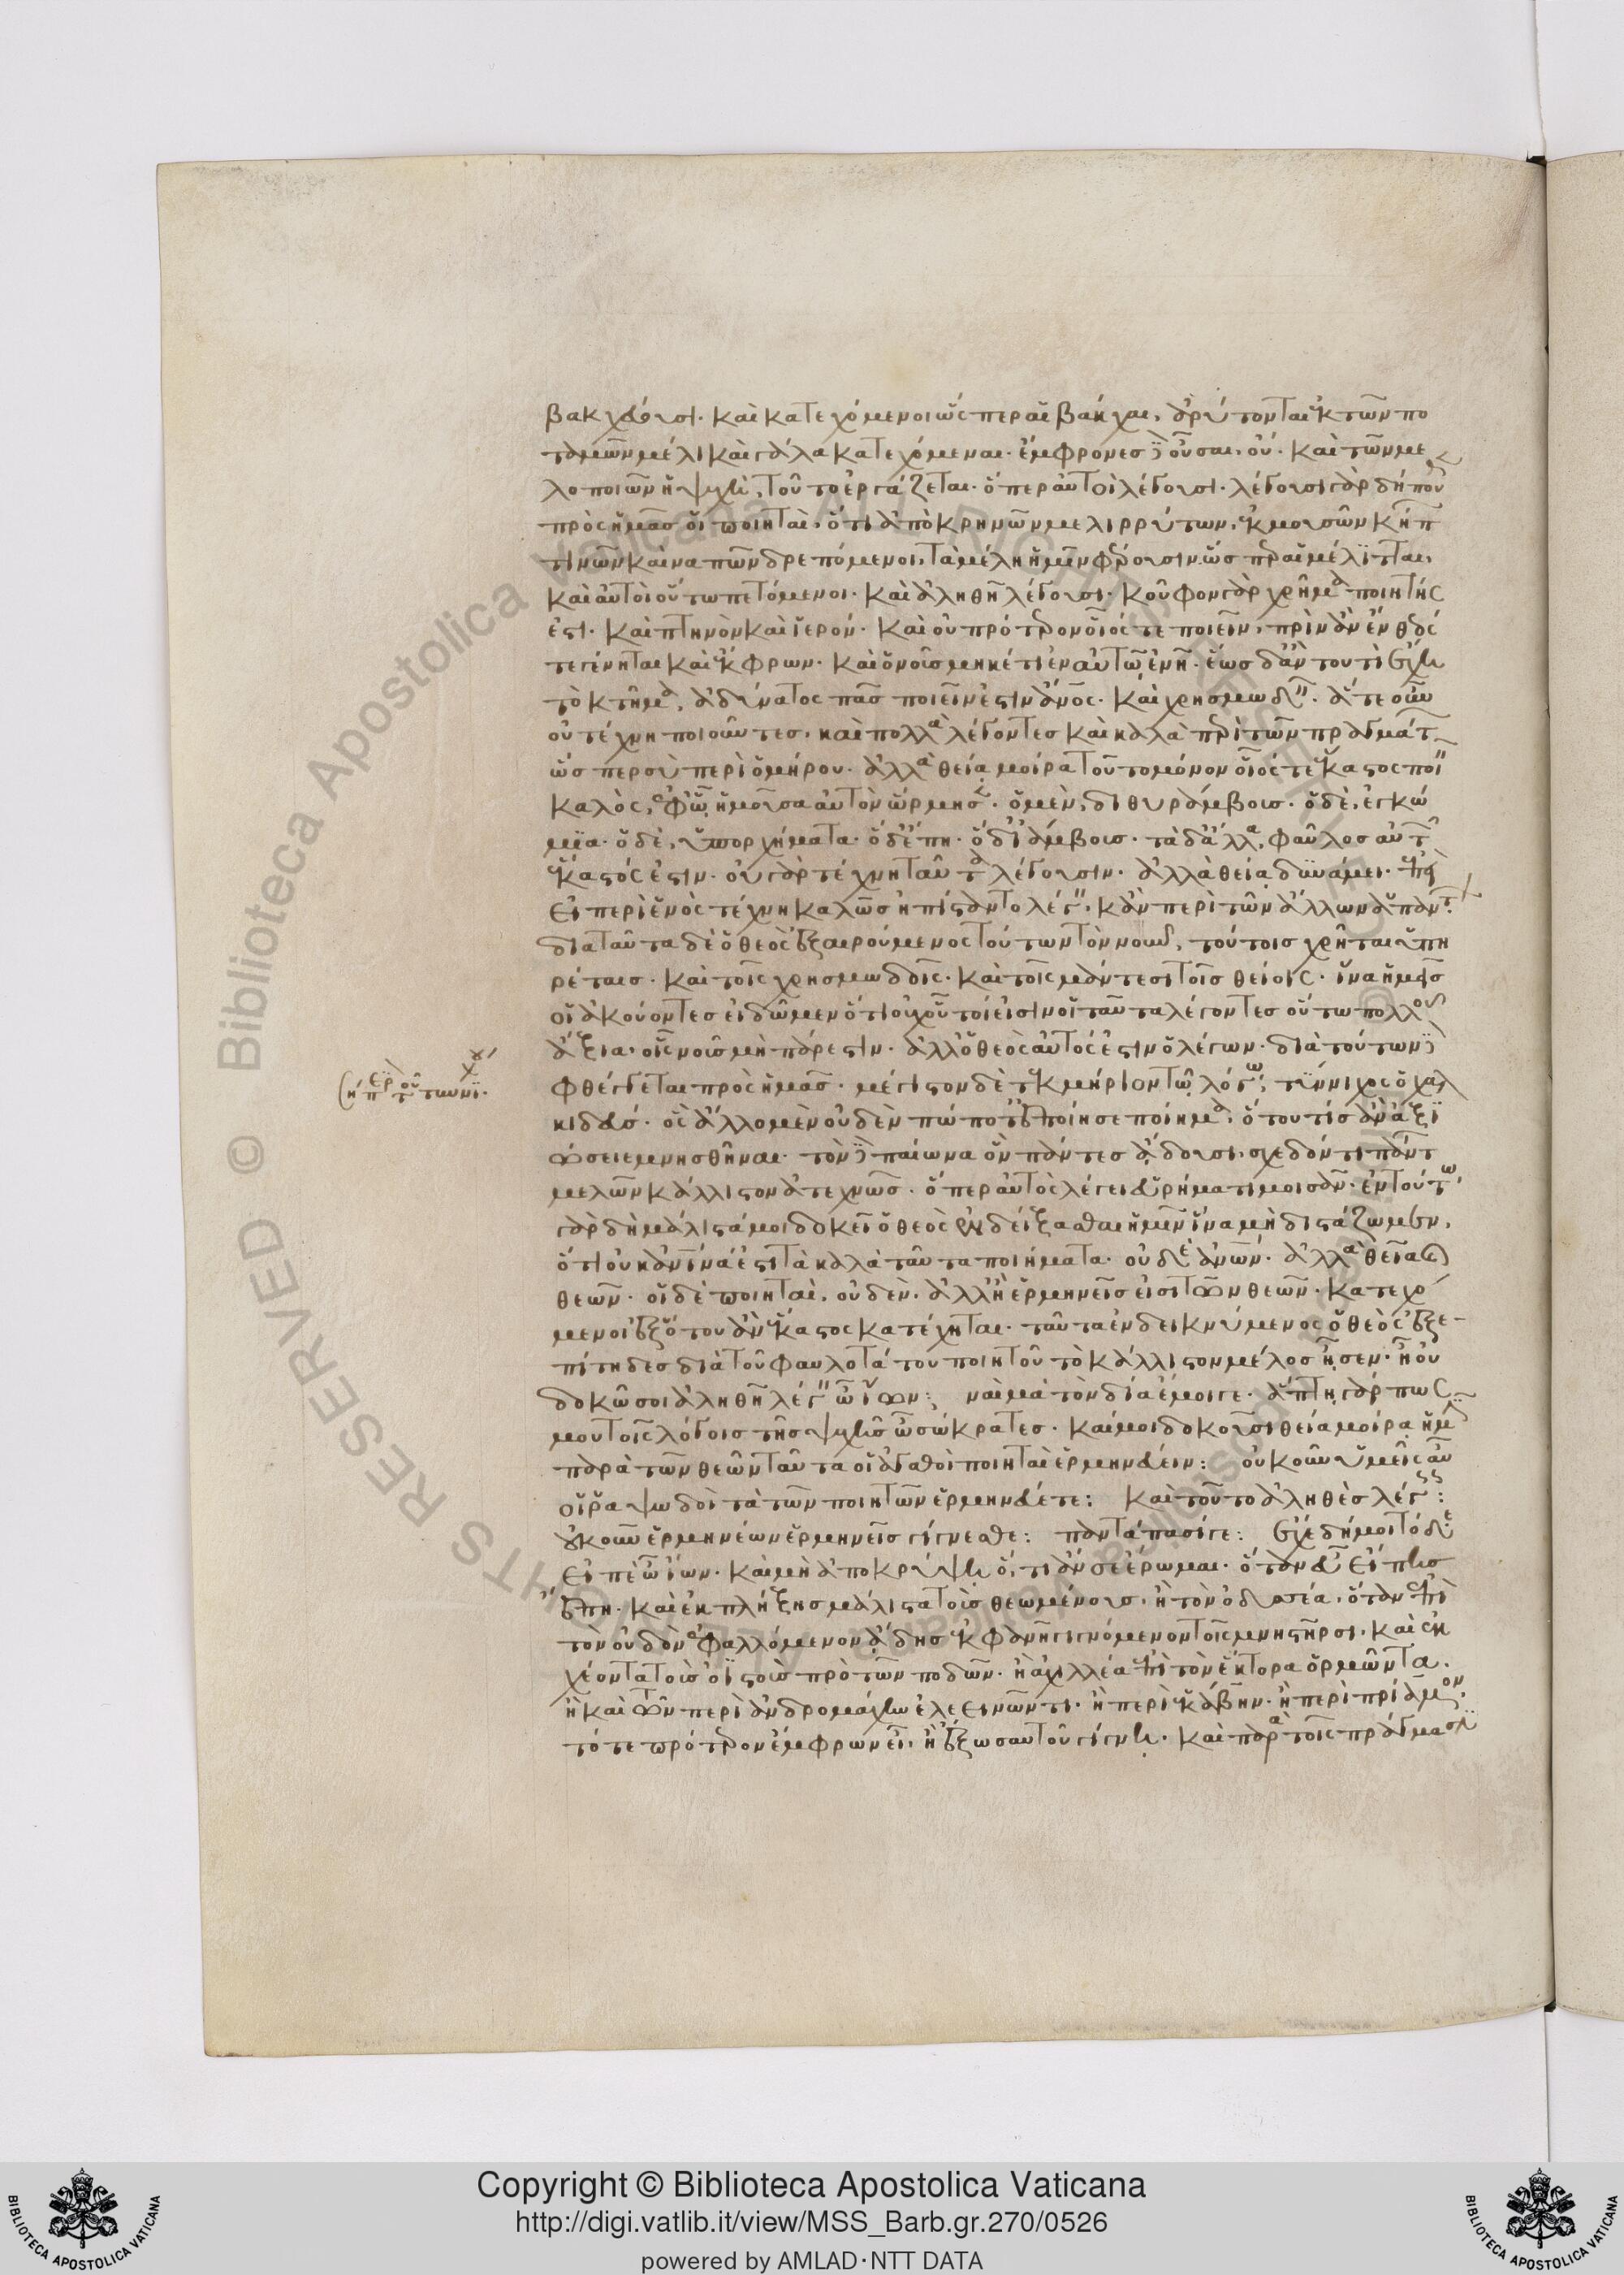 βακχεύουσι· καὶ κατεχόμενοι ὥσπερ αἱ βάκχαι, ἀρύτονται ἐκ τῶν πο
ταμῶν μέλι καὶ γάλα κατεχόμεναι· ἔμφρονες δὲ οὖσαι, οὔ· καὶ τῶν με
λοποιῶν ἡ ψυχὴ, τοῦτο ἐργάζεται· ὅπερ αὐτοὶ λέγουσι· λέγουσι γὰρ δήπου
πρὸς ἡμᾶς οἱ ποιηταὶ, ὅτι ἀπὸ κρηνῶν μελιρρύτων, ἐκ μουσῶν κήπ
τινῶν καὶ ναπῶν δρεπόμενοι, τὰ μέλη ἡμῖν φέρουσιν ὥσπερ αἱ μέλιτται,
καὶ αὐτοὶ οὕτω πετόμενοι· καὶ ἀληθῆ λέγουσι· κοῦφον γὰρ χρῆμα ποιητής
ἐστι· καὶ πτηνὸν καὶ ἱερόν· καὶ οὐ πρότερον οἷός τε ποιεῖν, πρὶν ἂν ἔνθεός
τε γένηται καὶ ἔκφρων· καὶ ὁ νοῦς μηκέτι ἐν αὐτῷ ἐνῇ· ἕως δ' ἂν τουτὶ ἔχῃ
τὸ κτῆμα, ἀδύνατος πᾶς ποιεῖν ἐστιν ἄνος· καὶ χρησμωδεῖν· ἅτε οὖν
οὐ τέχνῃ ποιοῦντες, καὶ πολλὰ λέγοντες καὶ καλὰ περὶ τῶν πραγμάτ
ὥσπερ σὺ περὶ ὁμήρου· ἀλλὰ θείᾳ μοίρᾳ τοῦτο μόνον οἷός τε ἕκαστος ποι
καλὸς, ἐφ' ᾧ ἡ μοῦσα αὐτὸν ὥρμησεν· ὁ μὲν, διθυράμβοις· ὁ δὲ, ἐγκώ
μια· ὁ δὲ, ὑπορχήματα· ὁ δ' ἔπη· ὁ δ' ἰάμβοις· τὰ δ' ἄλλα, φαῦλος αὐτ
ἕκαστός ἐστιν· οὐ γὰρ τέχνῃ ταῦτα λέγουσιν· ἀλλὰ θείᾳ δυνάμει· ἐπεὶ
εἰ περὶ ἑνὸς τέχνῃ καλῶς ἠπίσταντο λέγειν, κἂν περὶ τῶν ἄλλων ἁπάντ
διὰ ταῦτα δὲ ὁ θεὸς ἐξαιρούμενος τούτων τὸν νοῦν, τούτοις χρῆται ὑπη
ρέταις· καὶ τοῖς χρησμωδοῖς· καὶ τοῖς μάντεσι τοῖς θείοις· ἵνα ἡμεῖς
οἱ ἀκούοντες εἰδῶμεν ὅτι οὐχ οὗτοί εἰσιν οἱ ταῦτα λέγοντες οὕτω πολλοῦ
ἄξια· οἷς νοῦς μὴ πάρεστιν· ἀλλ' ὁ θεὸς αὐτός ἐστιν ὁ λέγων· διὰ τούτων δὲ
φθέγγεται πρὸς ἡμᾶς· μέγιστον δὲ τεκμήριον τῷ λόγῳ, τύννιχος ὁ χαλ
κιδεύς· ὃς ἄλλο μὲν οὐδὲν πώποτ' ἐποίησε ποίημα, ὅτου τίς ἂν ἀξι
ώσειε μνησθῆναι· τὸν δὲ παίωνα ὃν πάντες ᾄδουσι, σχεδόν τι πάντ
μελῶν κάλλιστον ἀτεχνῶς· ὅπερ αὐτὸς λέγει εὕρημά τι μοισᾶν· ἐν τούτω
γὰρ δὴ μάλιστά μοι δοκεῖ ὁ θεὸς ἐνδείξασθαι ἡμῖν ἵνα μὴ διστάζωμεν,
ὅτι οὐκ ἀνινά ἐστι τὰ καλὰ ταῦτα ποιήματα· οὐδὲ ἀνων· ἀλλὰ θεῖα καὶ
θεῶν· οἱ δὲ ποιηταὶ, οὐδὲν· ἀλλ' ἢ ἑρμηνεῖς εἰσι τῶν θεῶν· κατεχό
μενοι ἐξ ὅτου ἂν ἕκαστος κατέχηται· ταῦτα ἐνδεικνύμενος ὁ θεὸς ἐξε-
πίτηδες διὰ τοῦ φαυλοτάτου ποιητοῦ τὸ κάλλιστον μέλος ᾖσεν· ἢ οὐ
δοκῶ σοι ἀληθῆ λέγειν ὦ ἴων; ναὶ μὰ τὸν δία ἔμοιγε· ἅπτῃ γάρ πως
μου τοῖς λόγοις τῆς ψυχῆς ὦ σώκρατες· καί μοι δοκοῦσι θείᾳ μοίρᾳ ἡμῖν
παρὰ τῶν θεῶν ταῦτα οἱ ἀγαθοὶ ποιηταὶ ἑρμηνεύειν: οὐκοῦν ὑμεῖς αὖ
οἱ ῥαψωδοὶ τὰ τῶν ποιητῶν ἑρμηνεύετε: καὶ τοῦτο ἀληθὲς λέγεις:
οὐκοῦν ἑρμηνέων ἑρμηνεῖς γίγνεσθε: παντάπασί γε: ἔχε δή μοι τόδε
εἰπὲ ὦ ἴων· καὶ μὴ ἀποκρύψῃ ὅ, τι ἄν σε ἔρωμαι· ὅταν εὖ εἴπῃς
ἔπη· καὶ ἐκπλήξῃς μάλιστα τοὺς θεωμένους, ἢ τὸν ὀδυσσέα, ὅταν ἐπὶ
τὸν οὐδὸν ἐφαλλόμενον ᾄδῃς ἐκφανῆ γιγνόμενον τοῖς μνηστῆρσι, καὶ ἐκ
χέοντα τοὺς ὀϊστοὺς πρὸ τῶν ποδῶν· ἢ ἀχιλλέα ἐπὶ τὸν ἕκτορα ὁρμῶντα·
ἢ καὶ τῶν περὶ ἀνδρομάχην ἐλεεινῶν τι· ἢ περὶ ἑκάβην· ἢ περὶ πρίαμον·
τότε πρότερον ἔμφρων εἶ, ἢ ἔξω σαυτοῦ γίγνῃ· καὶ παρὰ τοῖς πράγμασιν
Copyright © Biblioteca Apostolica Vaticana
http://digi.vatlib.it/view/MSS_Barb.gr.270/0526
powered by AMLAD·NTT DATA